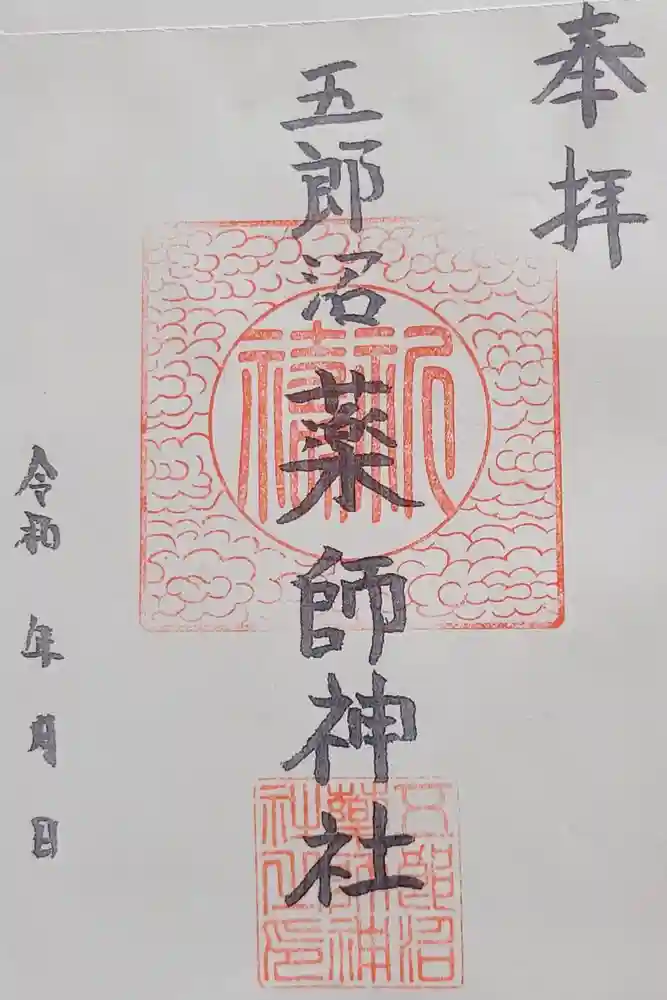 奉拝
五郎沼薬師神社
令和 年 月 日
祈祷
五郎沼
薬師神
社之印